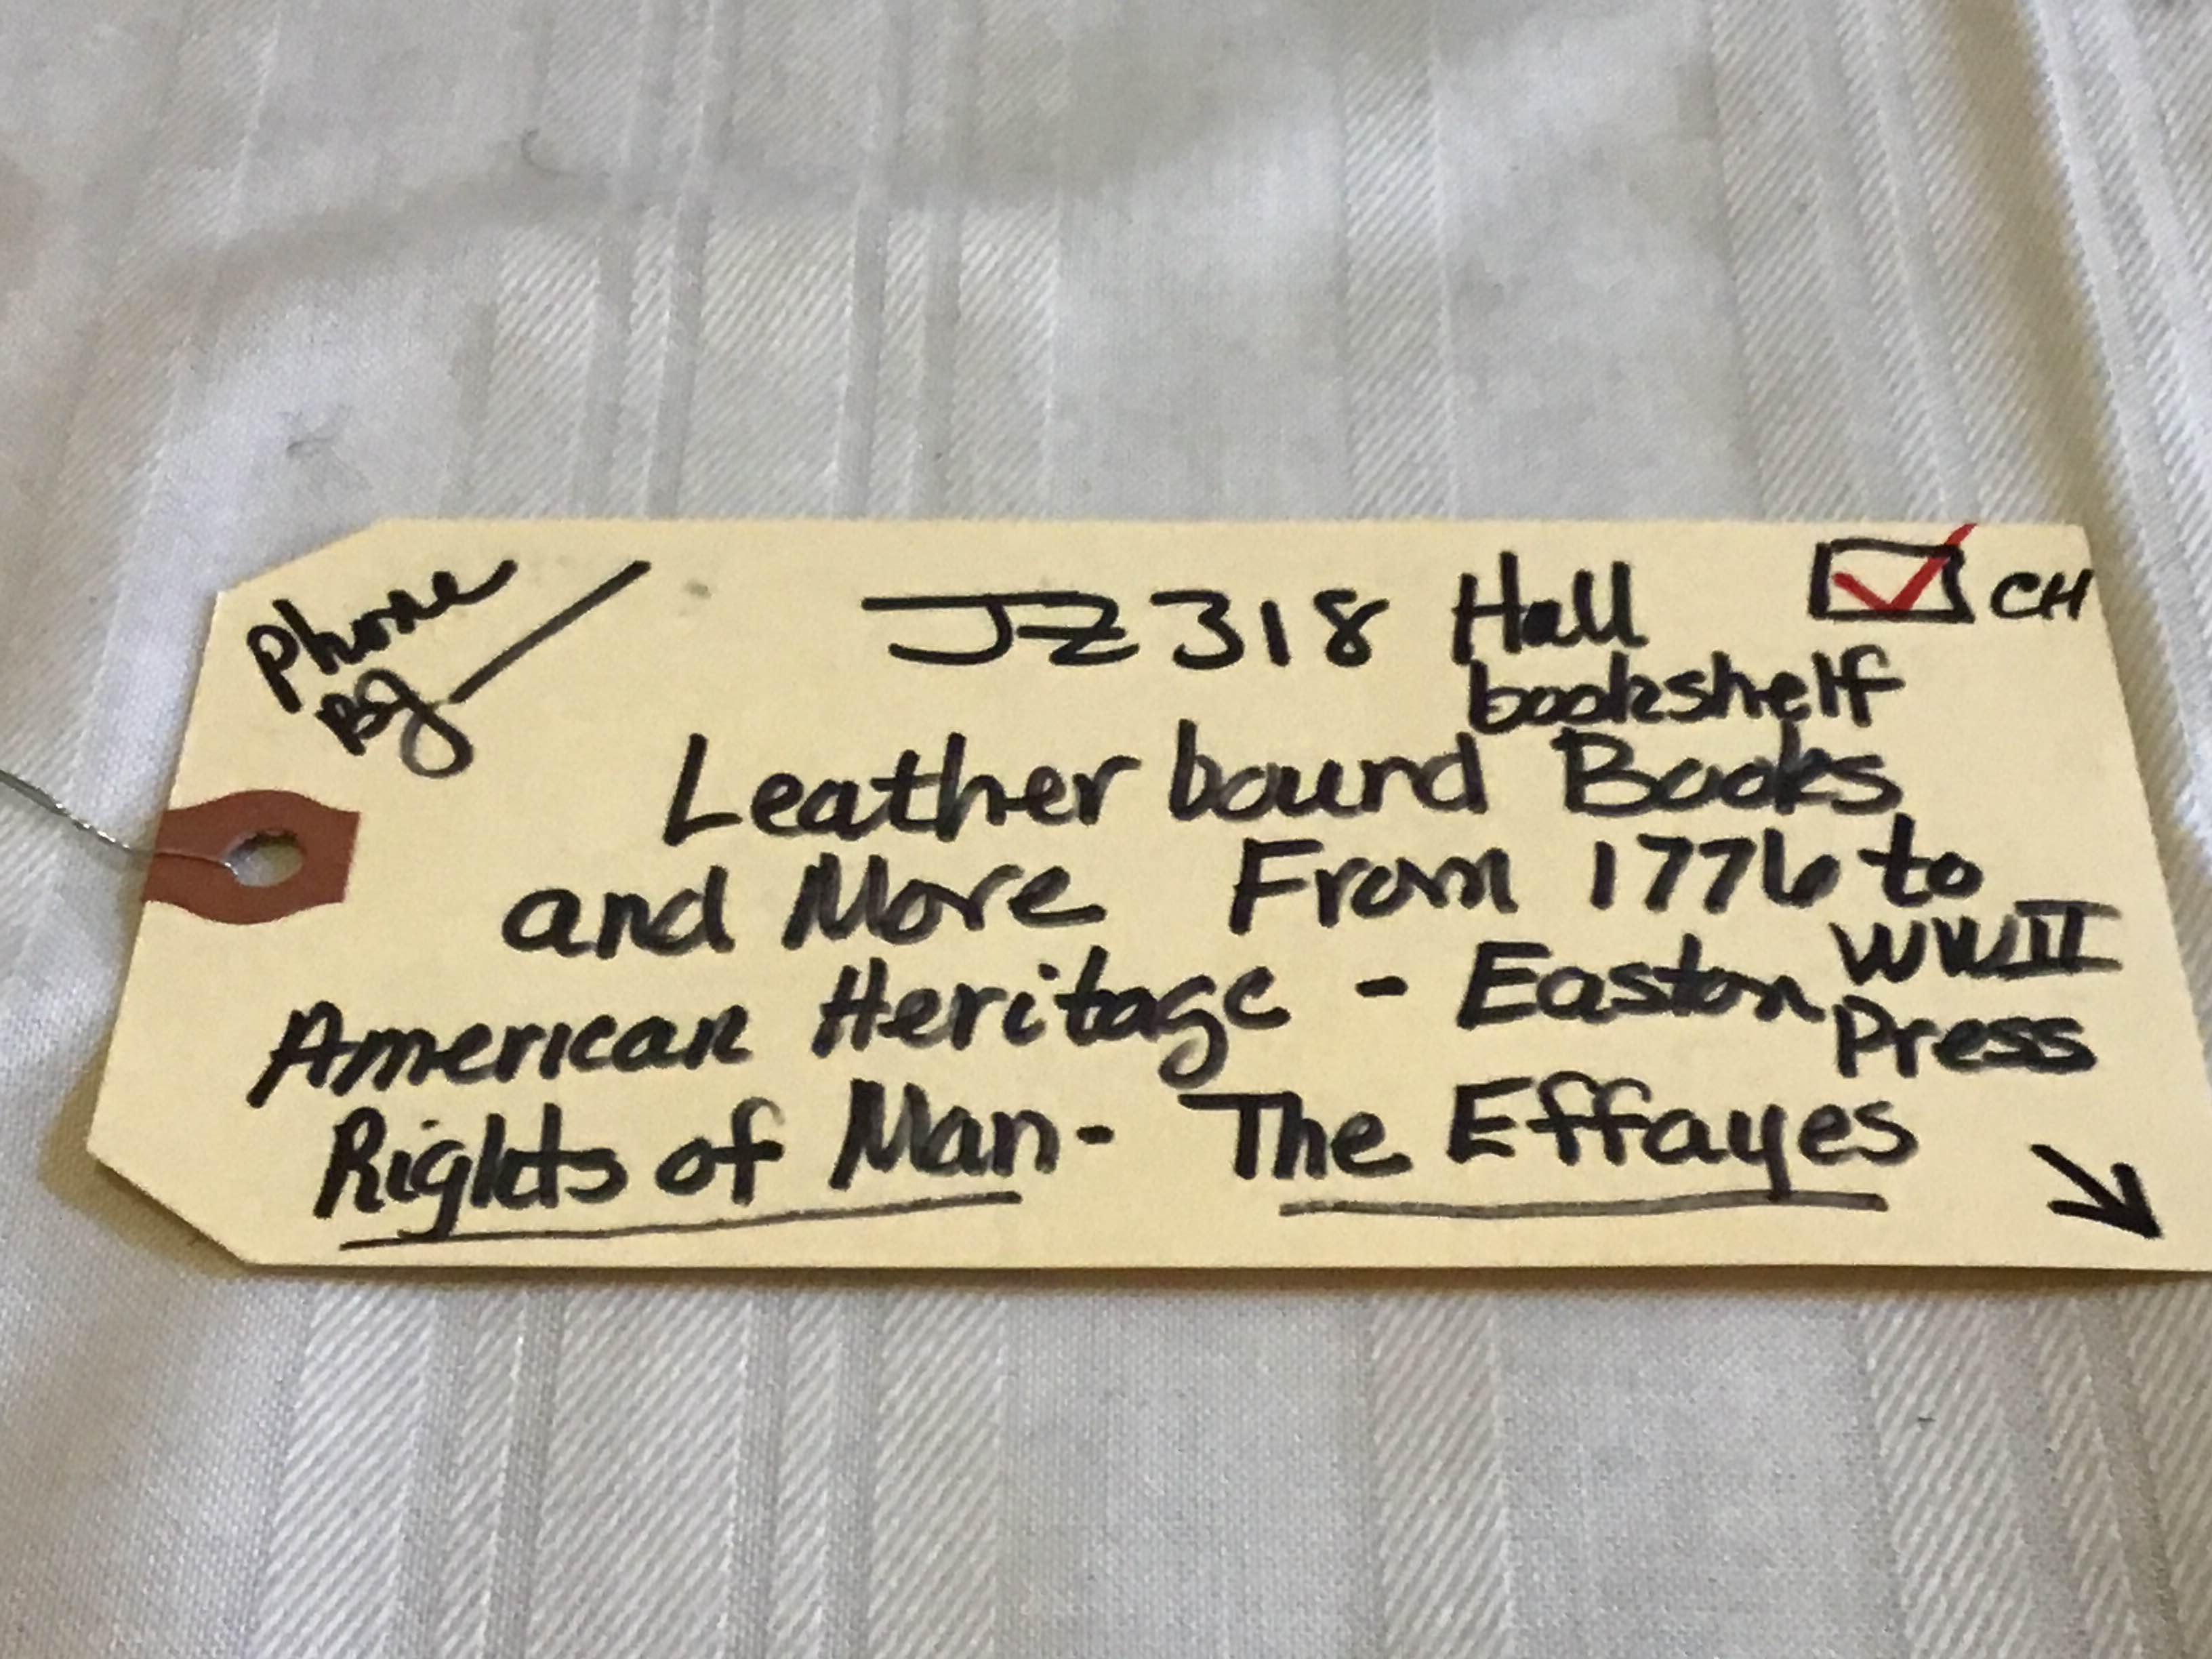 Phone
BJ
JZ318 Hall
bookshelf
CH
Leather bound Books
and More From 1776 to
WWII
American Heritage - Easton
Press
Rights of Man - The Effayes